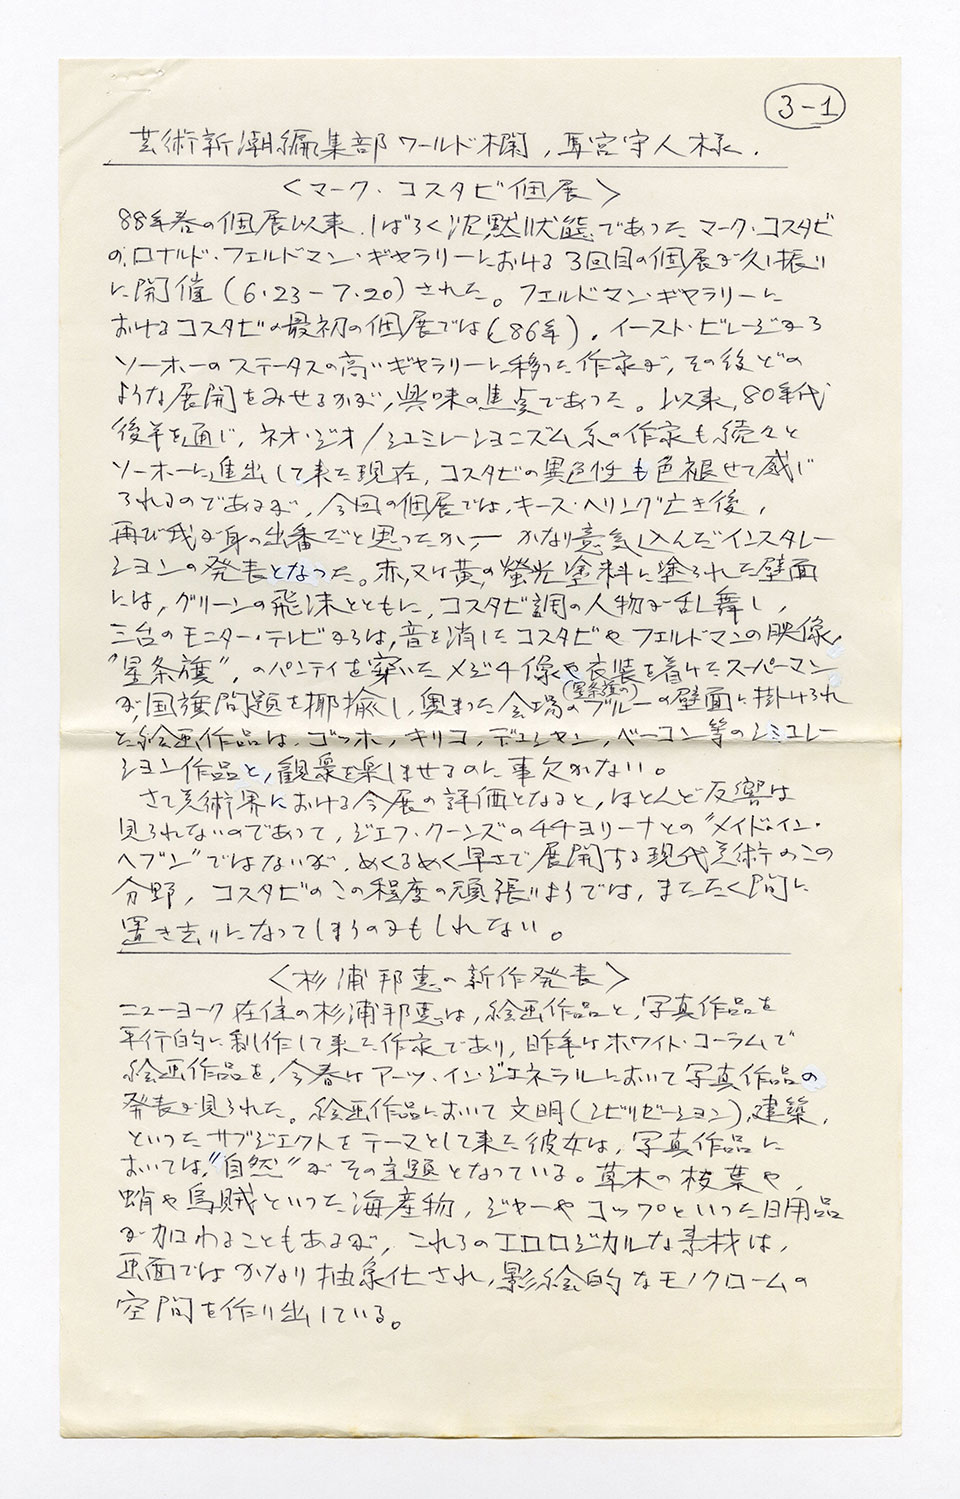 3-1
芸術新潮編集部ワールド欄,馬宮守人様.
<マーク・コスタビ個展>
88年春の個展以来,しばらく沈黙状態であったマーク・コスタビ
の,ロナルド・フェルドマン・ギャラリーにおける3回目の個展が久し振り
に開催(6・23-7・20)された。フェルドマン・ギャラリーに
おけるコスタビの最初の個展では(86年),イースト・ビレージから
ソーホーのステータスの高いギャラリーに移った作家が,その後どの
ような展開をみせるかが,興味の焦点であった。以来,80年代
後半を通じ,ネオ・ジオ/シュミレーショニズム系の作家も続々と
ソーホーに進出して来た現在,コスタビの異色性も色褪せて感じ
られるのであるが,今回の個展では,キース・ヘリング亡き後,
再び我が身の出番だと思ったか,― かなり意気込んだインスタレー
ションの発表となった。赤,又は黄の螢光塗料に塗られた壁面
には,グリーンの飛沫とともに,コスタビ調の人物が乱舞し,
三台のモニター・テレビからは,音を消したコスタビやフェルドマンの映像,
"星条旗",のパンティを穿いたメジチ像や衣装を着けたスーパーマン
が,国旗問題を揶揄し,奥まった会場の(星条旗の)ブルーの壁面に掛けられ
た絵画作品は,ゴッホ,キリコ,デュシャン,ベーコン等のシミュレー
ション作品と,観衆を楽しませるのに事欠かない。
さて美術界における今展の評価となると,ほとんど反響は
見られないのであって,ジェフ・クーンズのチチョリーナとの"メイド・イン・
ヘブン"ではないが,めくるめく早さで展開する現代美術のこの
分野,コスタビのこの程度の頑張りようでは,またたく間に
置き去りになってしまうのかもしれない。
<杉浦邦恵の新作発表>
ニューヨーク在住の杉浦邦恵は,絵画作品と,写真作品を
平行的に制作して来た作家であり,昨年はホワイト・コーラムで
絵画作品を,今春はアーツ・イン・ジェネラルにおいて写真作品の
発表が見られた。絵画作品において文明(シビリゼーション),建築,
といったサブジェクトをテーマとして来た彼女は,写真作品に
おいては,"自然"がその主題となっている。草木の枝葉や,
蛸や烏賊といった海産物,ジャーやコップといった日用品
が加わることもあるが,これらのエロロジカルな素材は,
画面ではかなり抽象化され,影絵的なモノクロームの
空間を作り出している。